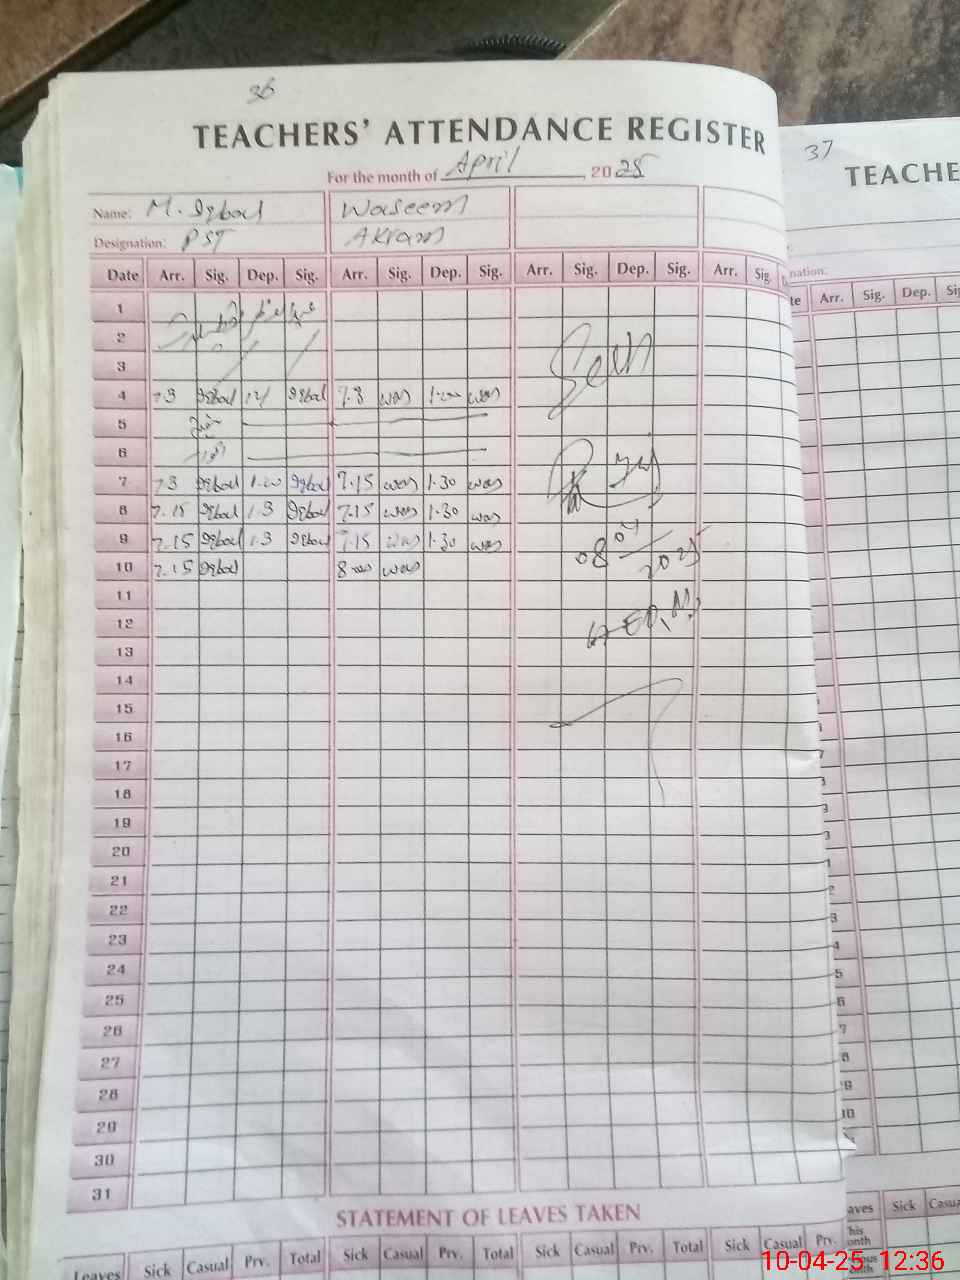 36
TEACHERS' ATTENDANCE REGISTER
For the month of April, 2025
Name: M. Iqbal Waseem
Designation: PST Akram
Date Arr. Sig. Dep. Sig. Arr. Sig. Dep. Sig. Arr. Sig. Dep. Sig. Arr. Sig.
1
2
3 Seen
4 7.3 Iqbal 12/ Iqbal 7.3 was 1.00 was
5
6 اتوار
7 7.3 Iqbal 1.00 Iqbal 7.15 was 1.30 was
8 7.15 Iqbal 1.3 Iqbal 7.15 was 1.30 was
9 7.15 Iqbal 1.3 Iqbal 7.15 was 1.30 was 08/04/2025
10 7.15 Iqbal 8.00 was
11
12
13
14
15
16
17
18
19
20
21
22
23
24
25
26
27
28
29
30
31
STATEMENT OF LEAVES TAKEN
Leaves Sick Casual Prv. Total Sick Casual Prv. Total Sick Casual Prv. Total Sick Casual Prv.
37
TEACHE
nation:
te Arr. Sig. Dep. Sig
aves Sick Casua
10-04-25 12:36